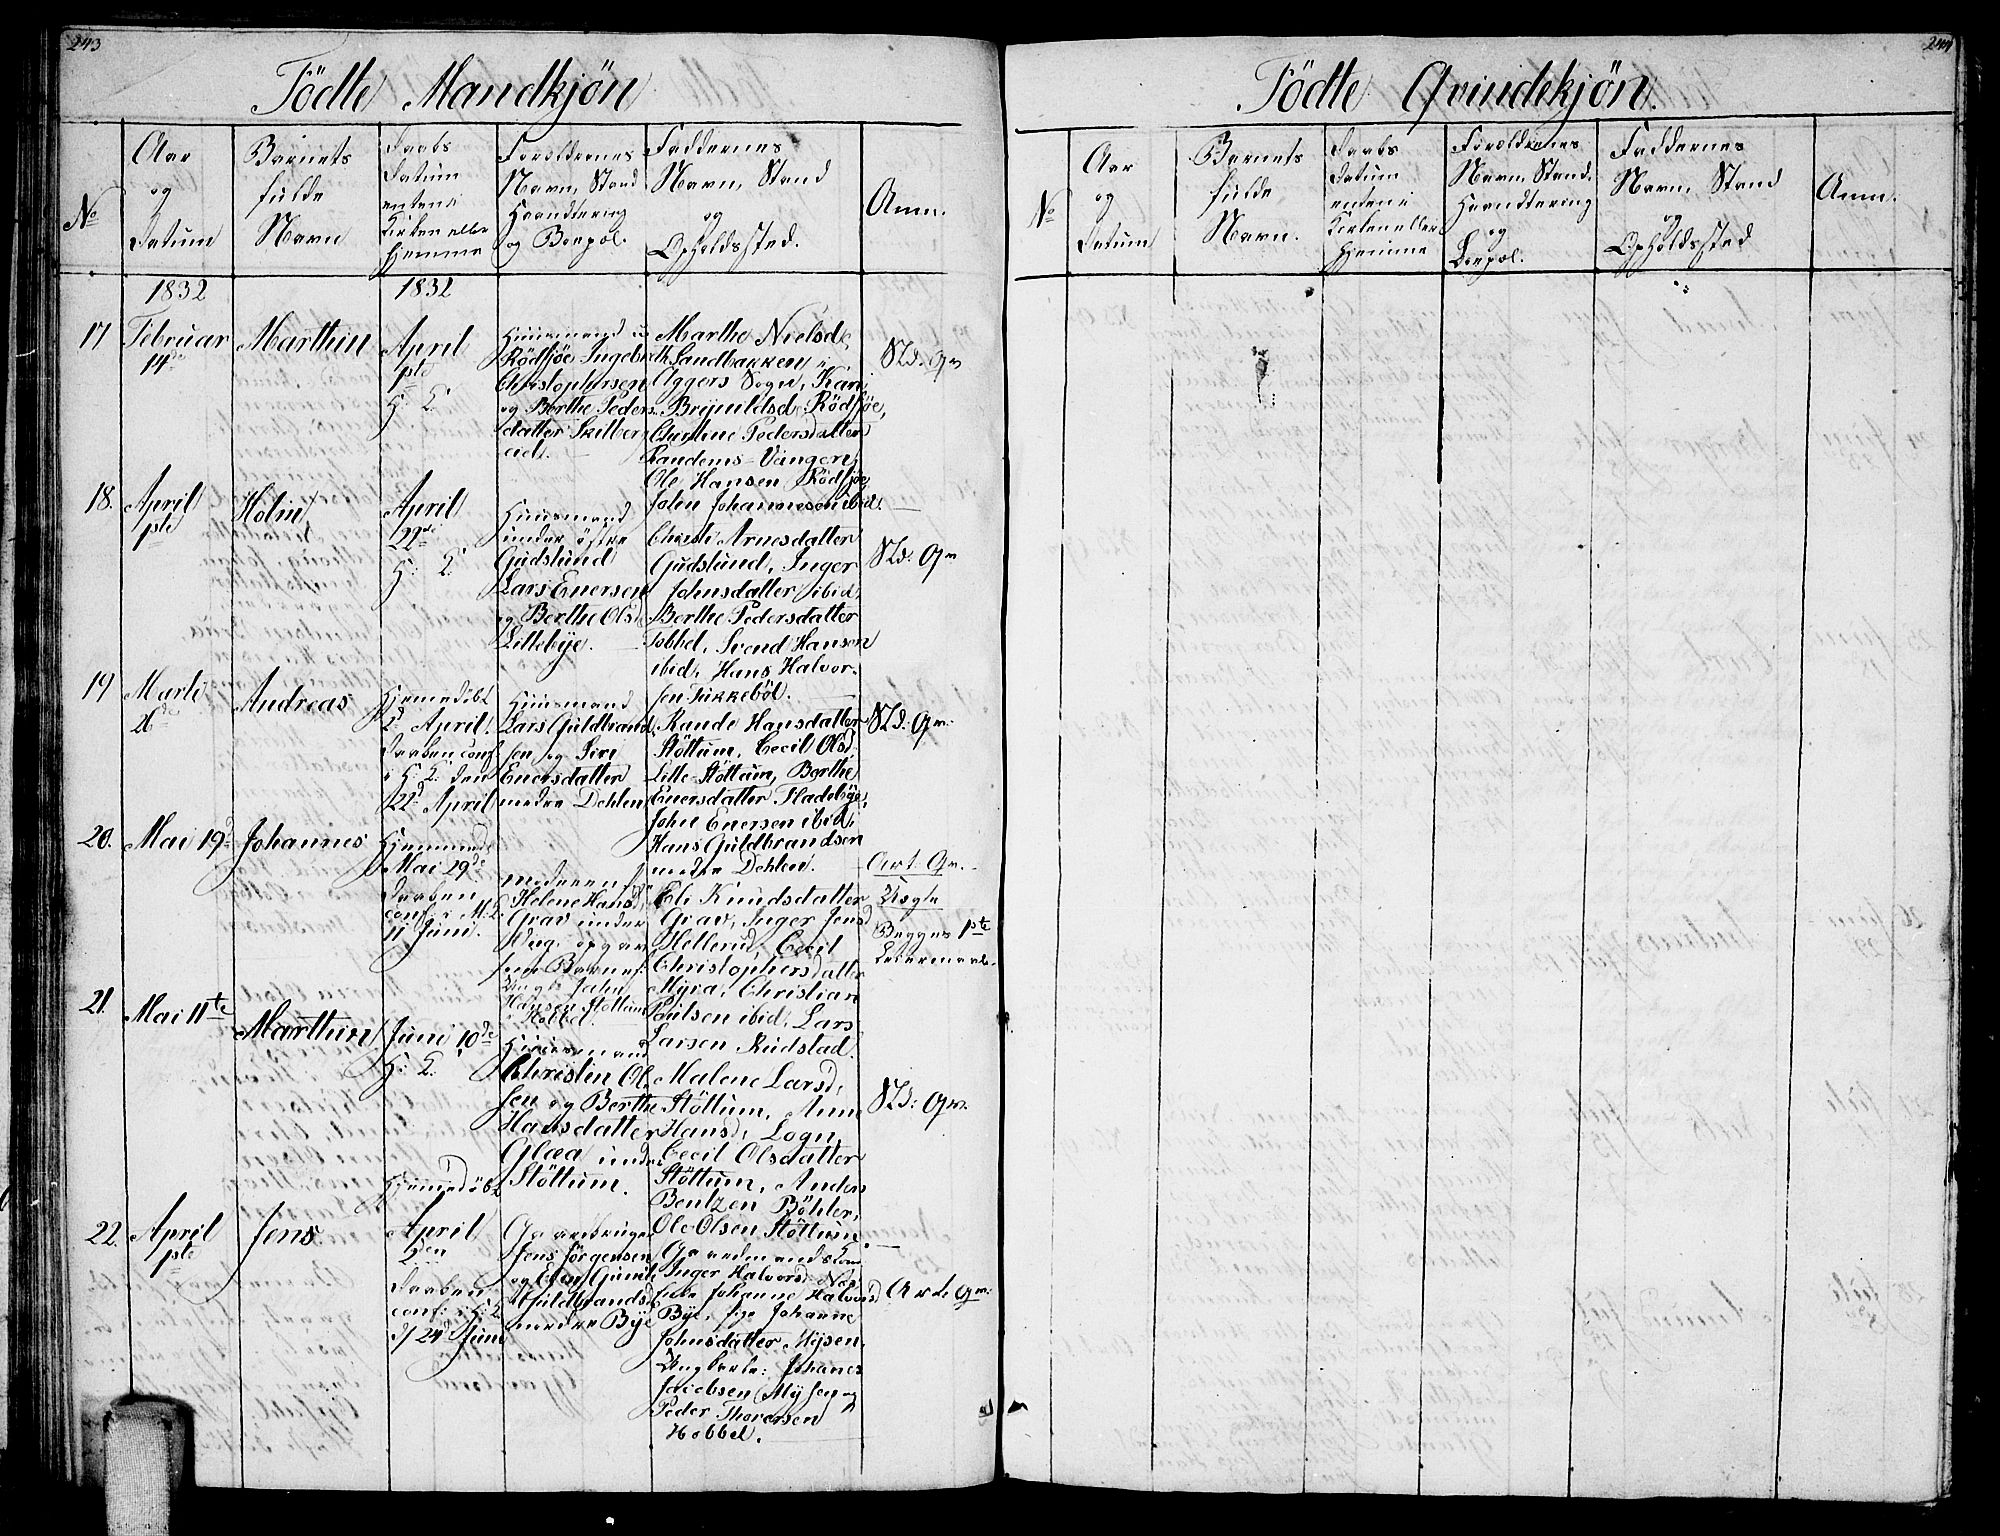 243
Födte Mandkjön
No
Aar
og
Datum
Barnets
fulde
Navn
Daabs
Datum
enten i
Kirken eller
hjemme
Forældrenes
Navn, Stand
Haandtering
og Boepæl.
Faddernes
Navn, Stand
og
Opholdssted.
Anm.
1832
1832
17
Februar
14de
Marthin
April
1ste
H: K:
Huusmand
Rödsjöe Ingebreth
Christophersen
og Berthe Peders
datter Skilber
eid.
Marthe Nielsd.
Sandbakken i
Aggers Sogn, Kari
Brynildsd. Rödsjöe,
Christine Pedersdatter
Randems-Vangen,
Ole Hansen Rödsjöe,
John Johannesen ibid.
18.
April
1ste
Holm
April
22de
H: K:
Huusmand
under östre
Gudslund
Lars Enersen
og Berthe Olsd.
Lillebye.
Christi Arnesdatter
Gudslund, Inger
Johnsdatter ibid,
Berthe Pedersdatter
Tobbel, Svend Hansen
ibid, Hans Halvor-
sen Tikkeböl.
19
Marti
26de
Andreas
Hjemmedöbt
2 April.
Daaben conf
i H: K: den
22d April
Huusmand
Lars Guldbrand
sen og Siri
Enersdatter
nedre Dehlen
Rande Hansdatter
Stöttum, Cecil Olsd.
Lille-Stöttum, Berthe
Enersdatter Fladebye,
John Enersen ibid,
Hans Guldbrandsen
nedre Dehlen.
20.
Mai 19d
Johannes
Hjemmed
Mai 29de
Daaben
conf: i M: K:
11 Juni.
Moderen
Helene Hansd.
Grav under
Barnef:
Ungk: John
Hansen Stöttum
Hobbel.
Eli Knudsdatter
Grav, Inger Jensd
Hellerud, Cecil
Christophersdatter
Myra, Christian
Poulsen ibid, Lars
Larsen Rudstad.
Uægte
Begges 1ste
Leiermaal.
21.
Mai 11te
Marthin
Juni 10de
H: K:
Huusmand
Christen Ol-
sen og Berthe
Hansdatter
Glæa under
Stöttum.
Malene Larsd,
Stöttum, Anne
Hansd, Logn,
Cecil Olsdatter
Stöttum, Anders
Bentzen Böhler,
Ole Olsen Stöttum.
22.
April
1ste
Jens
Hjemmedöbt
April
Daaben
conf: i H: K:
d/ 24d Juni
Gaardbruger
Jens Jörgensen
og Elen Gunild
Guldbrandsd
nedre Bye
Gaardmandskone
Inger Halvorsd Næs
Johanne Halvorsd
Bye, Johanne
Johnsdatter Mysen,
Ungkarle: Johannes
Jacobsen Mysen og
Peder Thoresen
Hobbel.
244
Födte Qvindekjön.
No
Aar
og
Datum
Barnets
fulde
Navn.
Daabs
Datum
enten i
Kirken eller
hjemme
Forældrenes
Navn, Stand.
Haandtering
og
Boepæl.
Faddernes
Navn, Stand
og
Opholdssted
Anm.